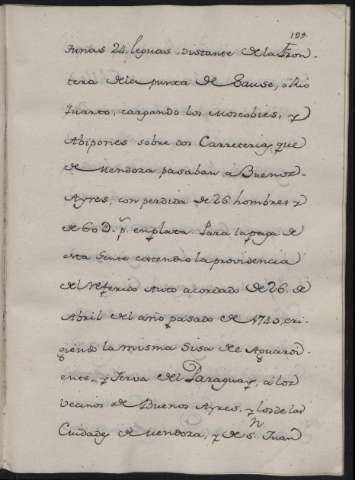 199.
runas 24 leguas distante de la Fron-
tera de la punta de Sause, o Rio
quarto, cargando los Mocobies, y
Abipones sobre dos Carreterias, que
de Mendoza pasaban a Buenos-
Ayres, con perdida de 26 hombres y
de 60 D. p.s en plata. Para la paga de
esta Gente extendio la providencia
del referido Auto acordado de 26. de
Abril del año pasado de 1740, exi-
giendo la misma Sisa de Aguardi-
ente, y Yerva del Paraguay, a los
vecinos de Buenos Ayres, y los de las
Ciudades de Mendoza, y de S.n Juan